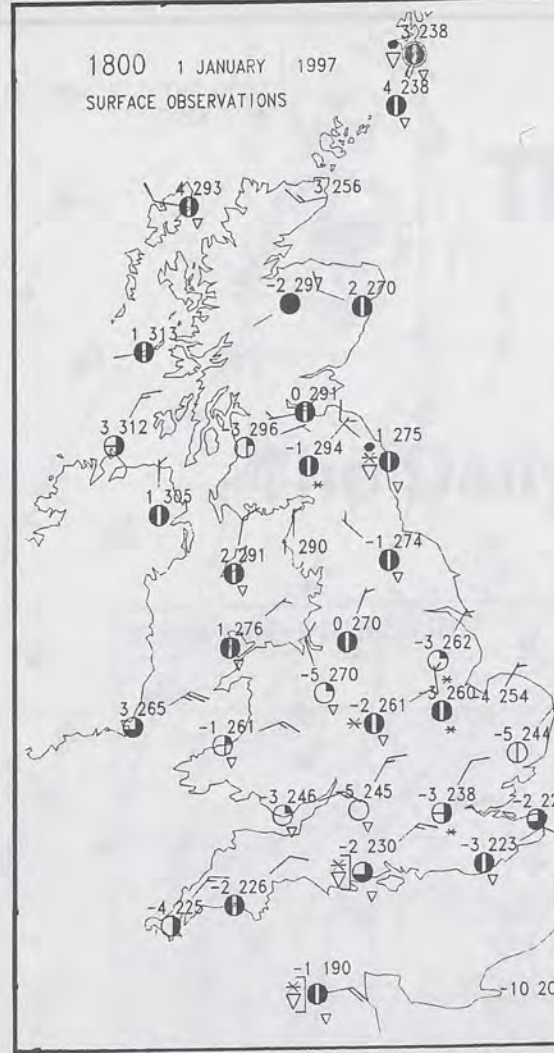 1800 1 JANUARY 1997
SURFACE OBSERVATIONS
3 238
4 238
4 293
3 256
-2 297
2 270
1 313
0 291
3 312
-3 296
-1 294
1 275
1 305
2 291
1 290
-1 274
1 276
0 270
-3 262
-5 270
4 254
3 265
-1 261
-2 261
-3 260
-5 244
-3 246
-5 245
-3 238
-2 22
-2 230
-3 223
-4 225
-2 226
-1 190
-10 20